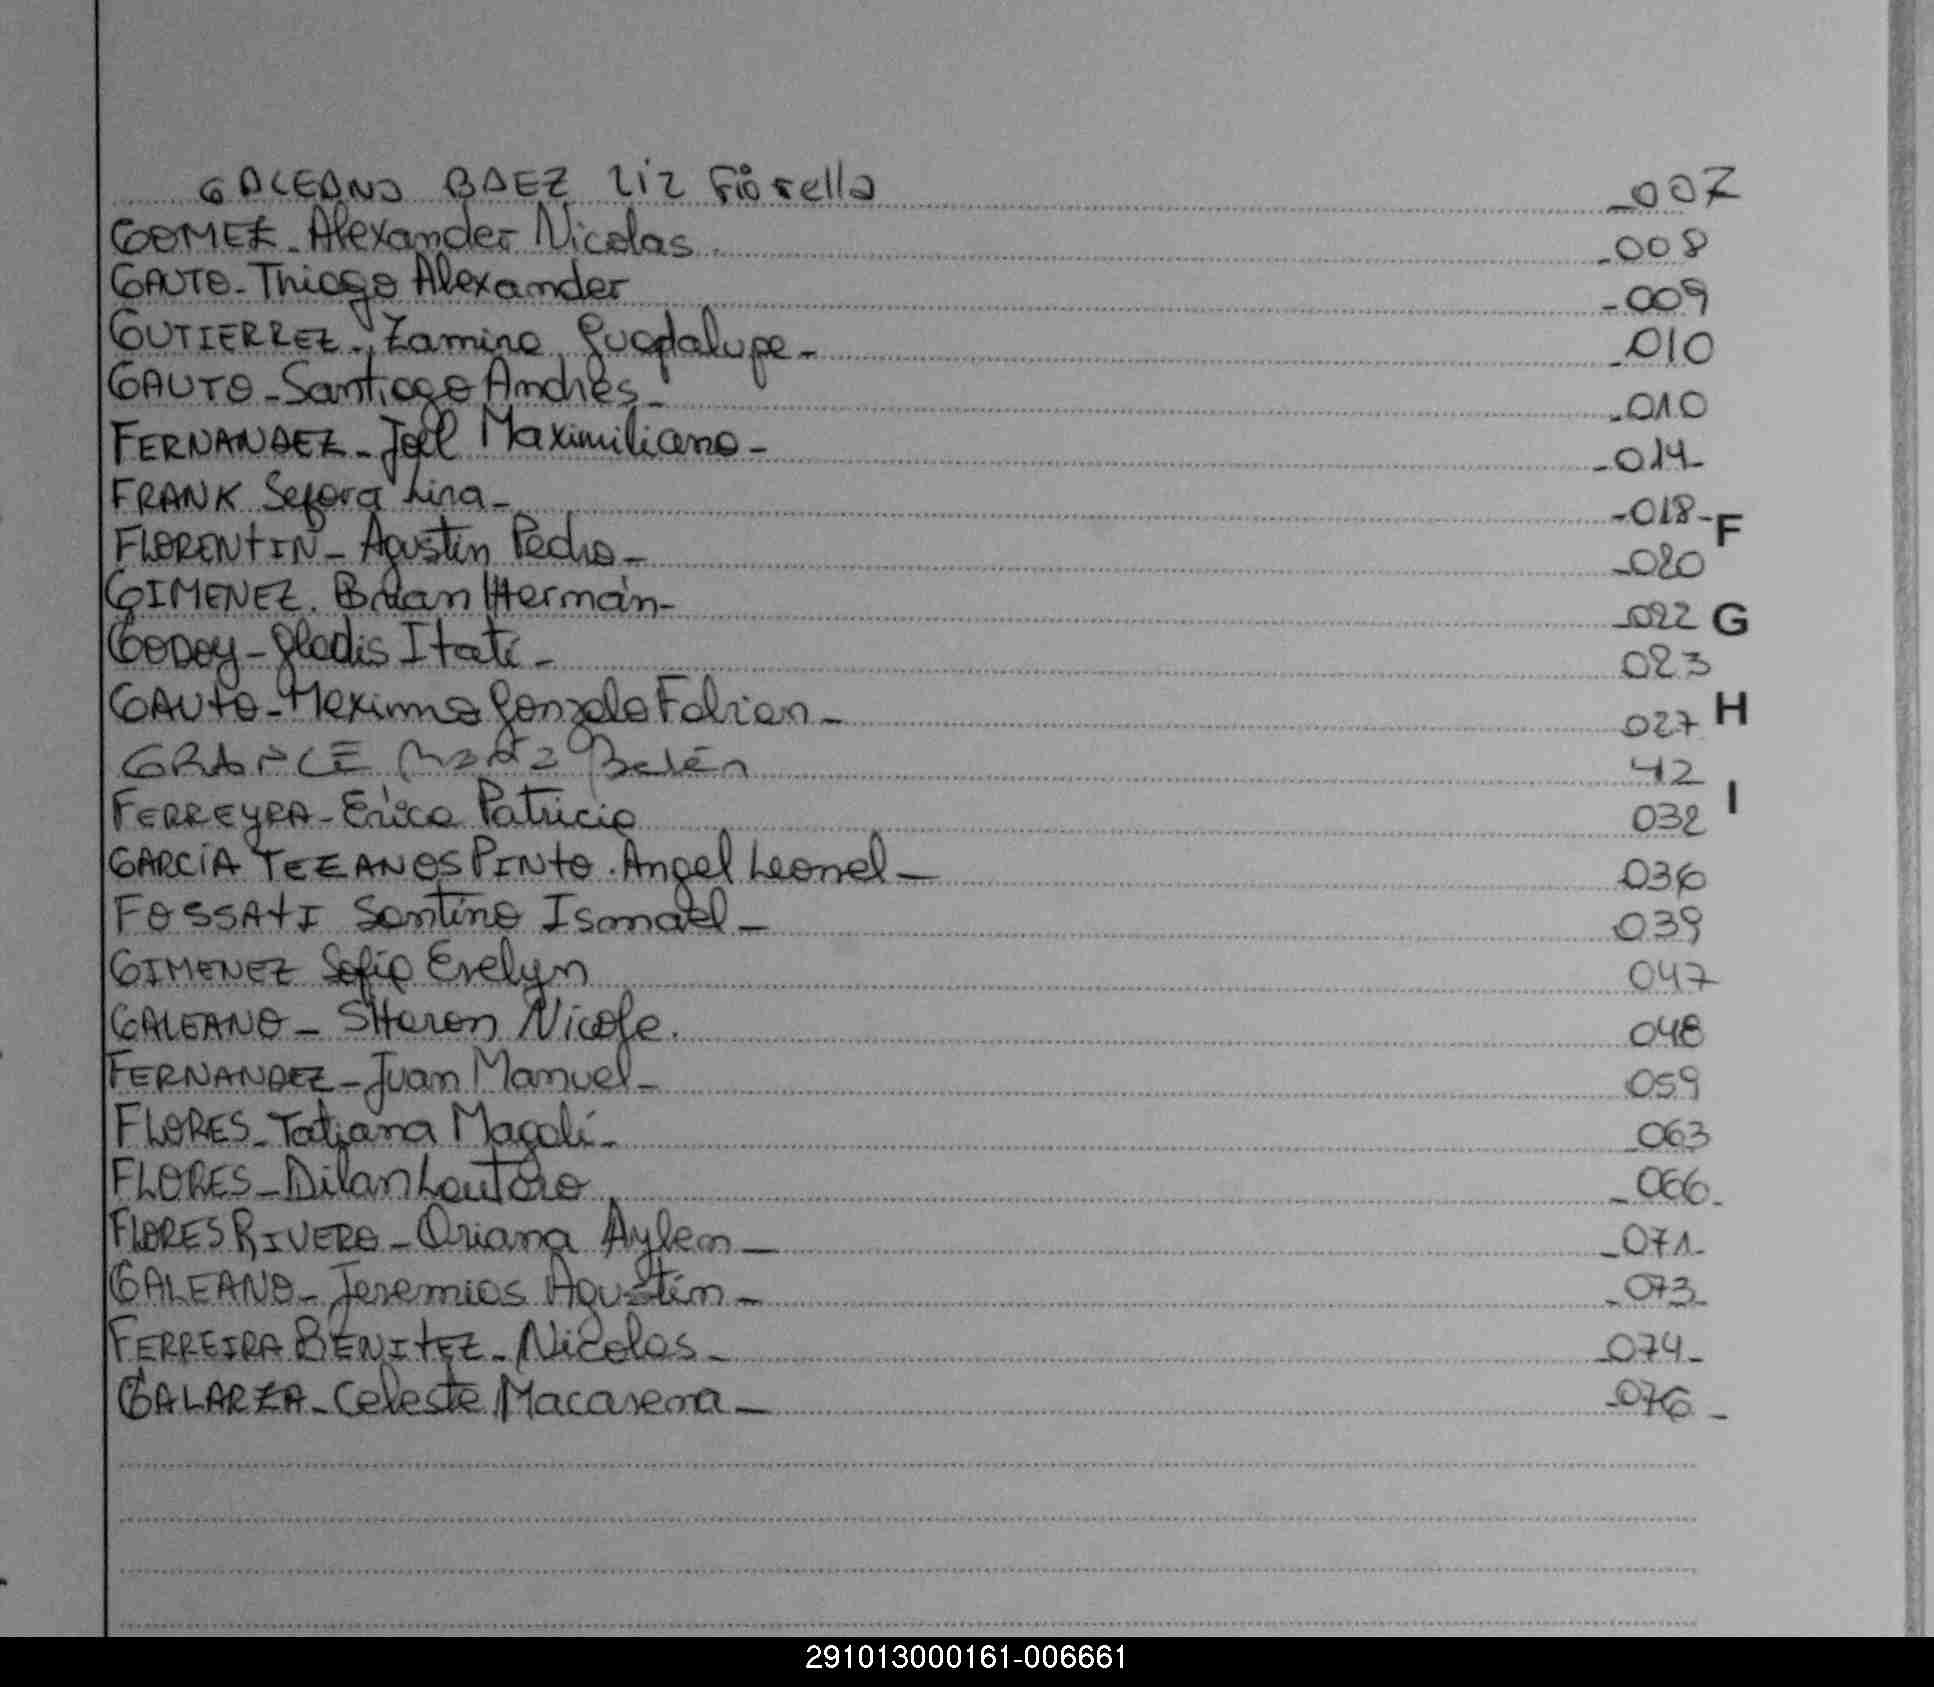 GALEANO BAEZ Liz Fiorella _007
GOMEZ - Alexander Nicolas _008
GAUTO - Thiago Alexander - 009
GUTIERREZ - Zamina Guadalupe - _010
GAUTO - Santiago Andrés - _010
FERNANDEZ - Joel Maximiliano - _014-
FRANK Sefora Lina - -018- F
FLORENTIN - Agustin Pedro - _020
GIMENEZ. Brian Hernán - _022 G
GODOY - Gladis Itati - 023
GAUTO - Maximo Gonzalo Fabian - 027 H
GRANCE Belén 42
FERREYRA - Erica Patricia 032 I
GARCÍA TEZANOS PINTO. Angel Leonel - 036
FOSSATI Santino Ismael - 039
GIMENEZ Sofia Evelyn 047
GALEANO - SHaron Nicole. 048
FERNANDEZ - Juan Manuel - 059
FLORES - Tatiana Magali - _063
FLORES - Dilan Lautaro _066-
FLORES RIVERO - Oriana Aylem - _071-
GALEANO - Jeremias Agustin - _073-
FERREIRA BENITEZ - Nicolas - _074-
GALARZA - Celeste Macarena - _076 -
291013000161-006661